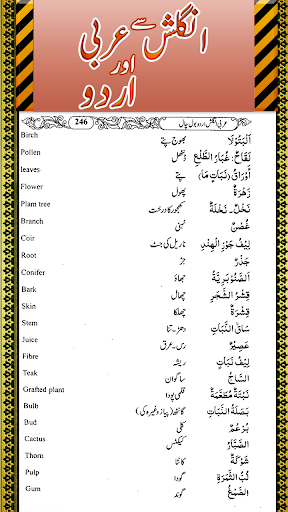 انگلش سے عربی
اور
اردو
246 عربی انگلش اردو بول چال
Birch بھوج پتے اَلْبَتُوْلَا
Pollen ڈنٹھل لَقَاحٌ. غُبَارُ الطَّلْعِ
leaves پتے أَوْرَاقُ (نَبَاتِ مَا)
Flower پھول زَهْرَةٌ
Plam tree کھجور کا درخت نَخْلٌ۔ نَخْلَةٌ
Branch ٹہنی غُصْنٌ
Coir ناریل کی جٹ لِيْفُ جَوْزِ الْهِنْدِ
Root جڑ جَذْرٌ
Conifer جھاؤ اَلصَّنَوْبَرِيَّةُ
Bark چھال قِشْرُ الشَّجَرِ
Skin چھلکا قِشْرَةٌ
Stem تنا سَاقُ النَّبَاتِ
Juice رس۔عرق عَصِيْرٌ
Fibre ریشہ لِيْفُ نَبَاتٍ
Teak ساگوان اَلسَّاجُ
Grafted plant قلمی پودا نَبْتَةٌ مُطَعَّمَةٌ
Bulb گانٹھ (پیاز وغیرہ کی) بَصَلَةُ النَّبَاتِ
Bud کلی بُرْعُمٌ
Cactus کیکٹس اَلصَّبَّارُ
Thorn کانٹا شَوْكَةٌ
Pulp گودا لُبُّ الثَّمَرَةِ
Gum گوند اَلصَّمْغُ